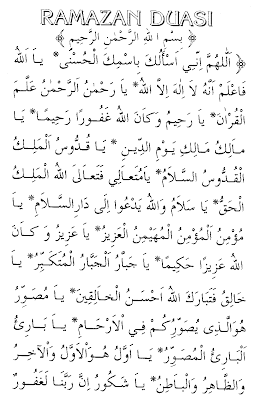 RAMAZAN DUASI
﴿ بِسْمِ اللهِ الرَّحْمٰنِ الرَّحِيمِ ﴾
﴿ اَللّٰهُمَّ اِنِّي اَسْأَلُكَ بِاسْمِكَ الْحُسْنٰى* يَا اَللهُ
فَاعْلَمْ اَنَّهُ لَا اِلٰهَ اِلَّا اللهُ* يَا رَحْمٰنُ اَلرَّحْمٰنُ عَلَّمَ
الْقُرْاٰنَ* يَا رَحِيمُ وَكَانَ اللهُ غَفُورًا رَحِيمًا* يَا
مَالِكُ مَالِكِ يَوْمِ الدِّينِ * يَا قُدُّوسُ اَلْمَلِكُ
الْقُدُّوسُ السَّلَامُ* يَامُتَعَالِي فَتَعَالَى اللهُ الْمَلِكُ
الْحَقُّ* يَا سَلَامُ وَاللهُ يَدْعُوا اِلَى دَارِالسَّلَامِ* يَا
مُؤْمِنُ اَلْمُؤْمِنُ الْمُهَيْمِنُ الْعَزِيزُ* يَا عَزِيزُ وَ كَانَ
اللهُ عَزِيزًا حَكِيمًا* يَا جَبَّارُ اَلْجَبَّارُ الْمُتَكَبِّرُ* يَا
خَالِقُ فَتَبَارَكَ اللهُ اَحْسَنُ الْخَالِقِينَ* يَا مُصَوِّرُ
هُوَالَّذِى يُصَوِّرُكُمْ فِي الْاَرْحَامِ* يَا بَارِئُ
اَلْبَارِئُ الْمُصَوِّرُ* يَا اَوَّلُ هُوَالْاَوَّلُ وَالْاٰخِرُ
وَالظَّاهِرُ وَالْبَاطِنُ* يَا شَكُورُ اِنَّ رَبَّنَا لَغَفُورٌ